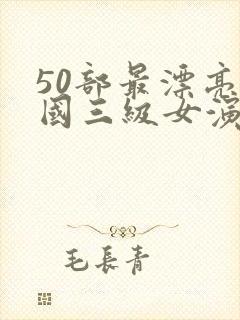 50部最漂亮
國三級女演
毛長青